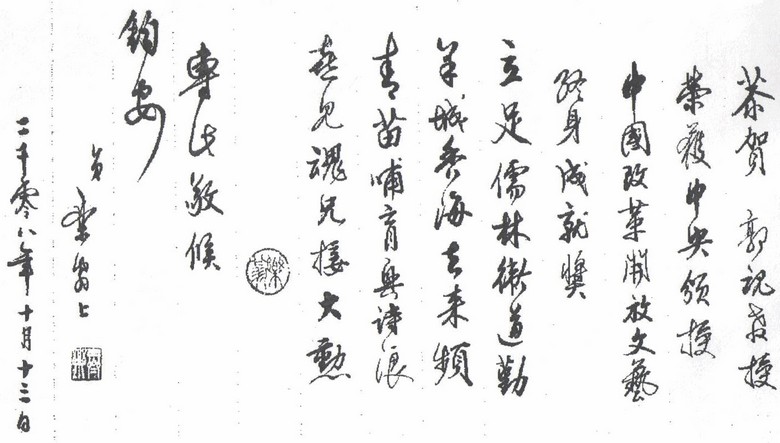 恭賀 郭魂教授
榮獲中央頒授
中國改革開放文藝
終身成就獎
立足儒林衛道勤
羊城香海去來頻
青苗哺育興詩浪
喜見魂兄接大勳
專此敬候
鈞安
弟 上
二千零八年十月十三日